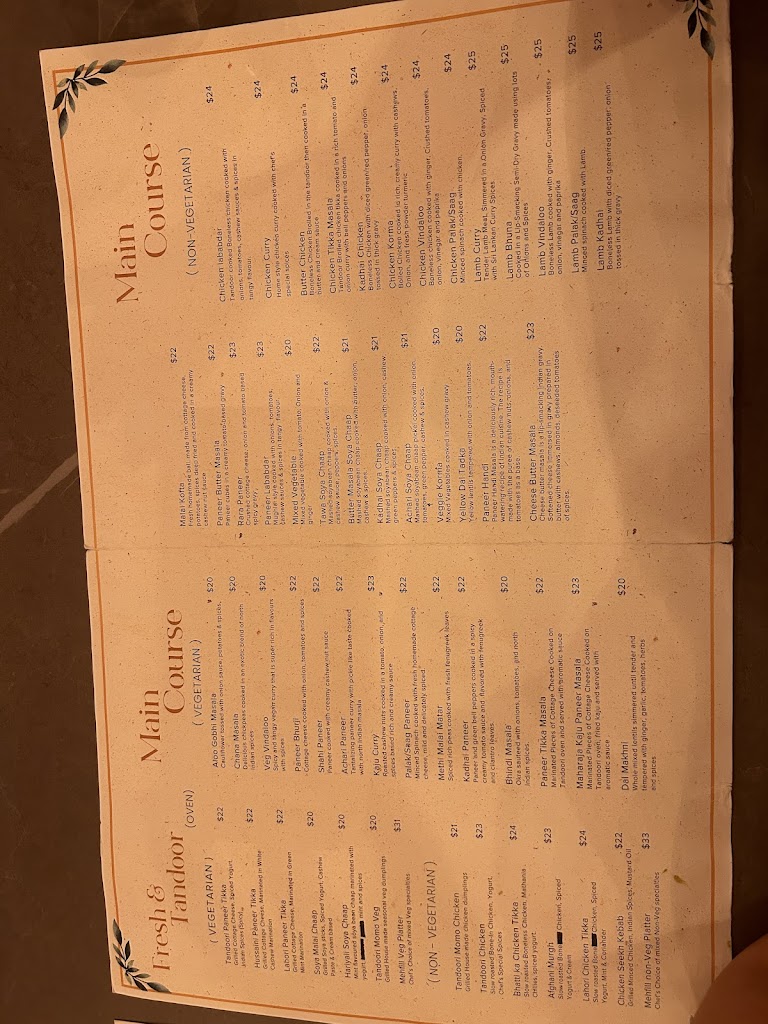 Fresh &
Tandoor (OVEN)
( VEGETARIAN )
Tandoori Paneer Tikka $22
Grilled Cottage Cheese, Spiced Yogurt,
Indian Spices
Hussaini Paneer Tikka $22
Grilled Cottage Cheese, Marinated in White
Cashew Marination
Lahori Paneer Tikka $22
Grilled Cottage Cheese, Marinated in Green
Mint Marination
Soya Malai Chaap $20
Grilled Soya sticks, Spiced Yogurt, Cashew
Paste & Cream Based
Hariyali Soya Chaap $20
Mint flavoured soya bean chaap marinated with
mint and spices
Tandoori Momo Veg $20
Grilled House made seasonal veg dumplings
Mehfill Veg Platter $31
Chef's Choice of mixed Veg specialties
( NON - VEGETARIAN )
Tandoori Momo Chicken $21
Grilled House-made chicken dumplings
Tandoori Chicken $23
Slow roasted Bone-In Chicken, Yogurt,
Chef's Special Spices
Bhatti ka Chicken Tikka $24
Slow roasted Boneless Chicken, Mathania
Chillies, spiced yogurt
Afghani Murgh $23
Slow roasted Chicken, Spiced
Yogurt & Cream
Lahori Chicken Tikka $24
Slow roasted Chicken, Spiced
Yogurt, Mint & Coriander
Chicken Seekh Kebab $22
Grilled Minced Chicken, Indian Spices, Mustard Oil
Mehfill non-Veg Platter $33
Chef's Choice of mixed Nonveg specialties
Main
Course
( VEGETARIAN )
Aloo Gobhi Masala $20
Cauliflower tossed with onion sauce, potatoes & spices,
Chana Masala $20
Delicious chickpeas cooked in an exotic blend of north
Indian spices
Veg Vindaloo $20
Spicy and tangy vegan curry that is super rich in flavours
with spices
Paneer Bhurji $22
Cottage cheese cooked with onion, tomatoes and spices
Shahi Paneer $22
Paneer cooked with creamy cashew nut sauce
Achari Paneer $22
Tantalising paneer curry with pickle like taste cooked
with north indian masala
Kaju Curry $23
Roasted cashew nuts cooked in a tomato, onion, and
spices based rich and creamy sauce
Palak/Saag Paneer $22
Minced Spinach cooked with fresh homemade cottage
cheese, mild and delicately spiced
Methi Malai Matar $22
Spiced rich peas cooked with fresh fenugreek leaves
Kadhai Paneer $22
Paneer and green bell peppers cooked in a spicy
creamy tomato sauce and flavored with fenugreek
and cilantro leaves
Bhindi Masala $20
Okra sauteed with onions, tomatoes, and north
Indian spices
Paneer Tikka Masala $22
Marinated Pieces of Cottage Cheese Cooked on
Tandoori oven and served with aromatic sauce
Maharaja Kaju Paneer Masala $23
Marinated Pieces of Cottage Cheese Cooked on
Tandoori oven, fried kaju and served with
aromatic sauce
Dal Makhni $20
Whole mixed lentils simmered until tender and
tempered with ginger, garlic, tomatoes, herbs
and spices
Malai Kofta $22
Fresh homemade ball, made from cottage cheese,
potatoes, spices deep fried and cooked in a creamy
cashew nut sauce
Paneer Butter Masala $22
Paneer cubes in a creamy tomato-based gravy
Rara Paneer $23
Crushed cottage cheese, onion and tomato based
spicy gravy
Paneer Lababdar $23
Mughlai style cooked with onions, tomatoes,
cashew sauces & spices in tangy flavour
Mixed Vegetable $20
Mixed vegetable cooked with tomato, Onion and
ginger
Tawa Soya Chaap $22
Mashed soyabean chaap cooked with onion &
cashew sauce, indoori spices
Butter Masala Soya Chaap $21
Mashed soyabean chaap cooked with butter, onion,
cashew & spices
Kadhai Soya Chaap $21
Mashed soyabean chaap cooked with onion, cashew
green peppers & spices
Achari Soya Chaap $21
Mashed soyabean chaap pickle cooked with onion,
tomatoes, green pepper, cashew & spices,
Veggie Korma $20
Mixed Vegetables cooked in cashew gravy
Yellow Dal Tadka $20
Yellow lentils tempered with onion and tomatoes
Paneer Handi $22
Paneer Handi Masala is a deliciously rich, mouth-
watering recipe of Indian cuisine. The recipe is
made with the richness of cashew nuts, onions, and
tomatoes as a base.
Cheese Butter Masala $23
Cheese butter masala is a lip-smacking Indian gravy.
Softened cheese immersed in gravy prepared in
butter with cashews, almonds, deseeded tomatoes
of spices.
Main
Course
( NON-VEGETARIAN )
Chicken lababdar $24
Tandoor cooked Boneless chicken cooked with
onions, tomatoes, cashew sauces & spices in
tangy flavour.
Chicken Curry $24
Home style chicken curry cooked with chef's
special spices
Butter Chicken $24
Boneless Chicken Broiled in the tandoor then cooked in a
butter and cream sauce
Chicken Tikka Masala $24
Tandoor Broiled chicken tikka cooked in a rich tomato and
onion curry with bell peppers and onions
Kadhai Chicken $24
Boneless Chicken with diced green/red pepper, onion
tossed in thick gravy
Chicken Korma $24
Boiled Chicken cooked in rich, creamy curry with cashews,
Onion, and fresh powder turmeric
Chicken Vindaloo $24
Boneless Chicken cooked with ginger, Crushed tomatoes,
onion, vinegar and paprika
Chicken Palak/Saag $24
Minced spinach cooked with chicken.
Lamb Curry $25
Tender Lamb Meat, Simmered in a Onion Gravy, Spiced
with Sri Lankan Curry Spices
Lamb Bhuna $25
Cooked in a Lip-Smacking Semi-Dry Gravy made using lots
of Onions and Spices
Lamb Vindaloo $25
Boneless Lamb cooked with ginger, Crushed tomatoes,
onion, vinegar and paprika
Lamb Palak/Saag $25
Minced spinach cooked with Lamb.
Lamb Kadhai $25
Boneless Lamb with diced green/red pepper, onion
tossed in thick gravy